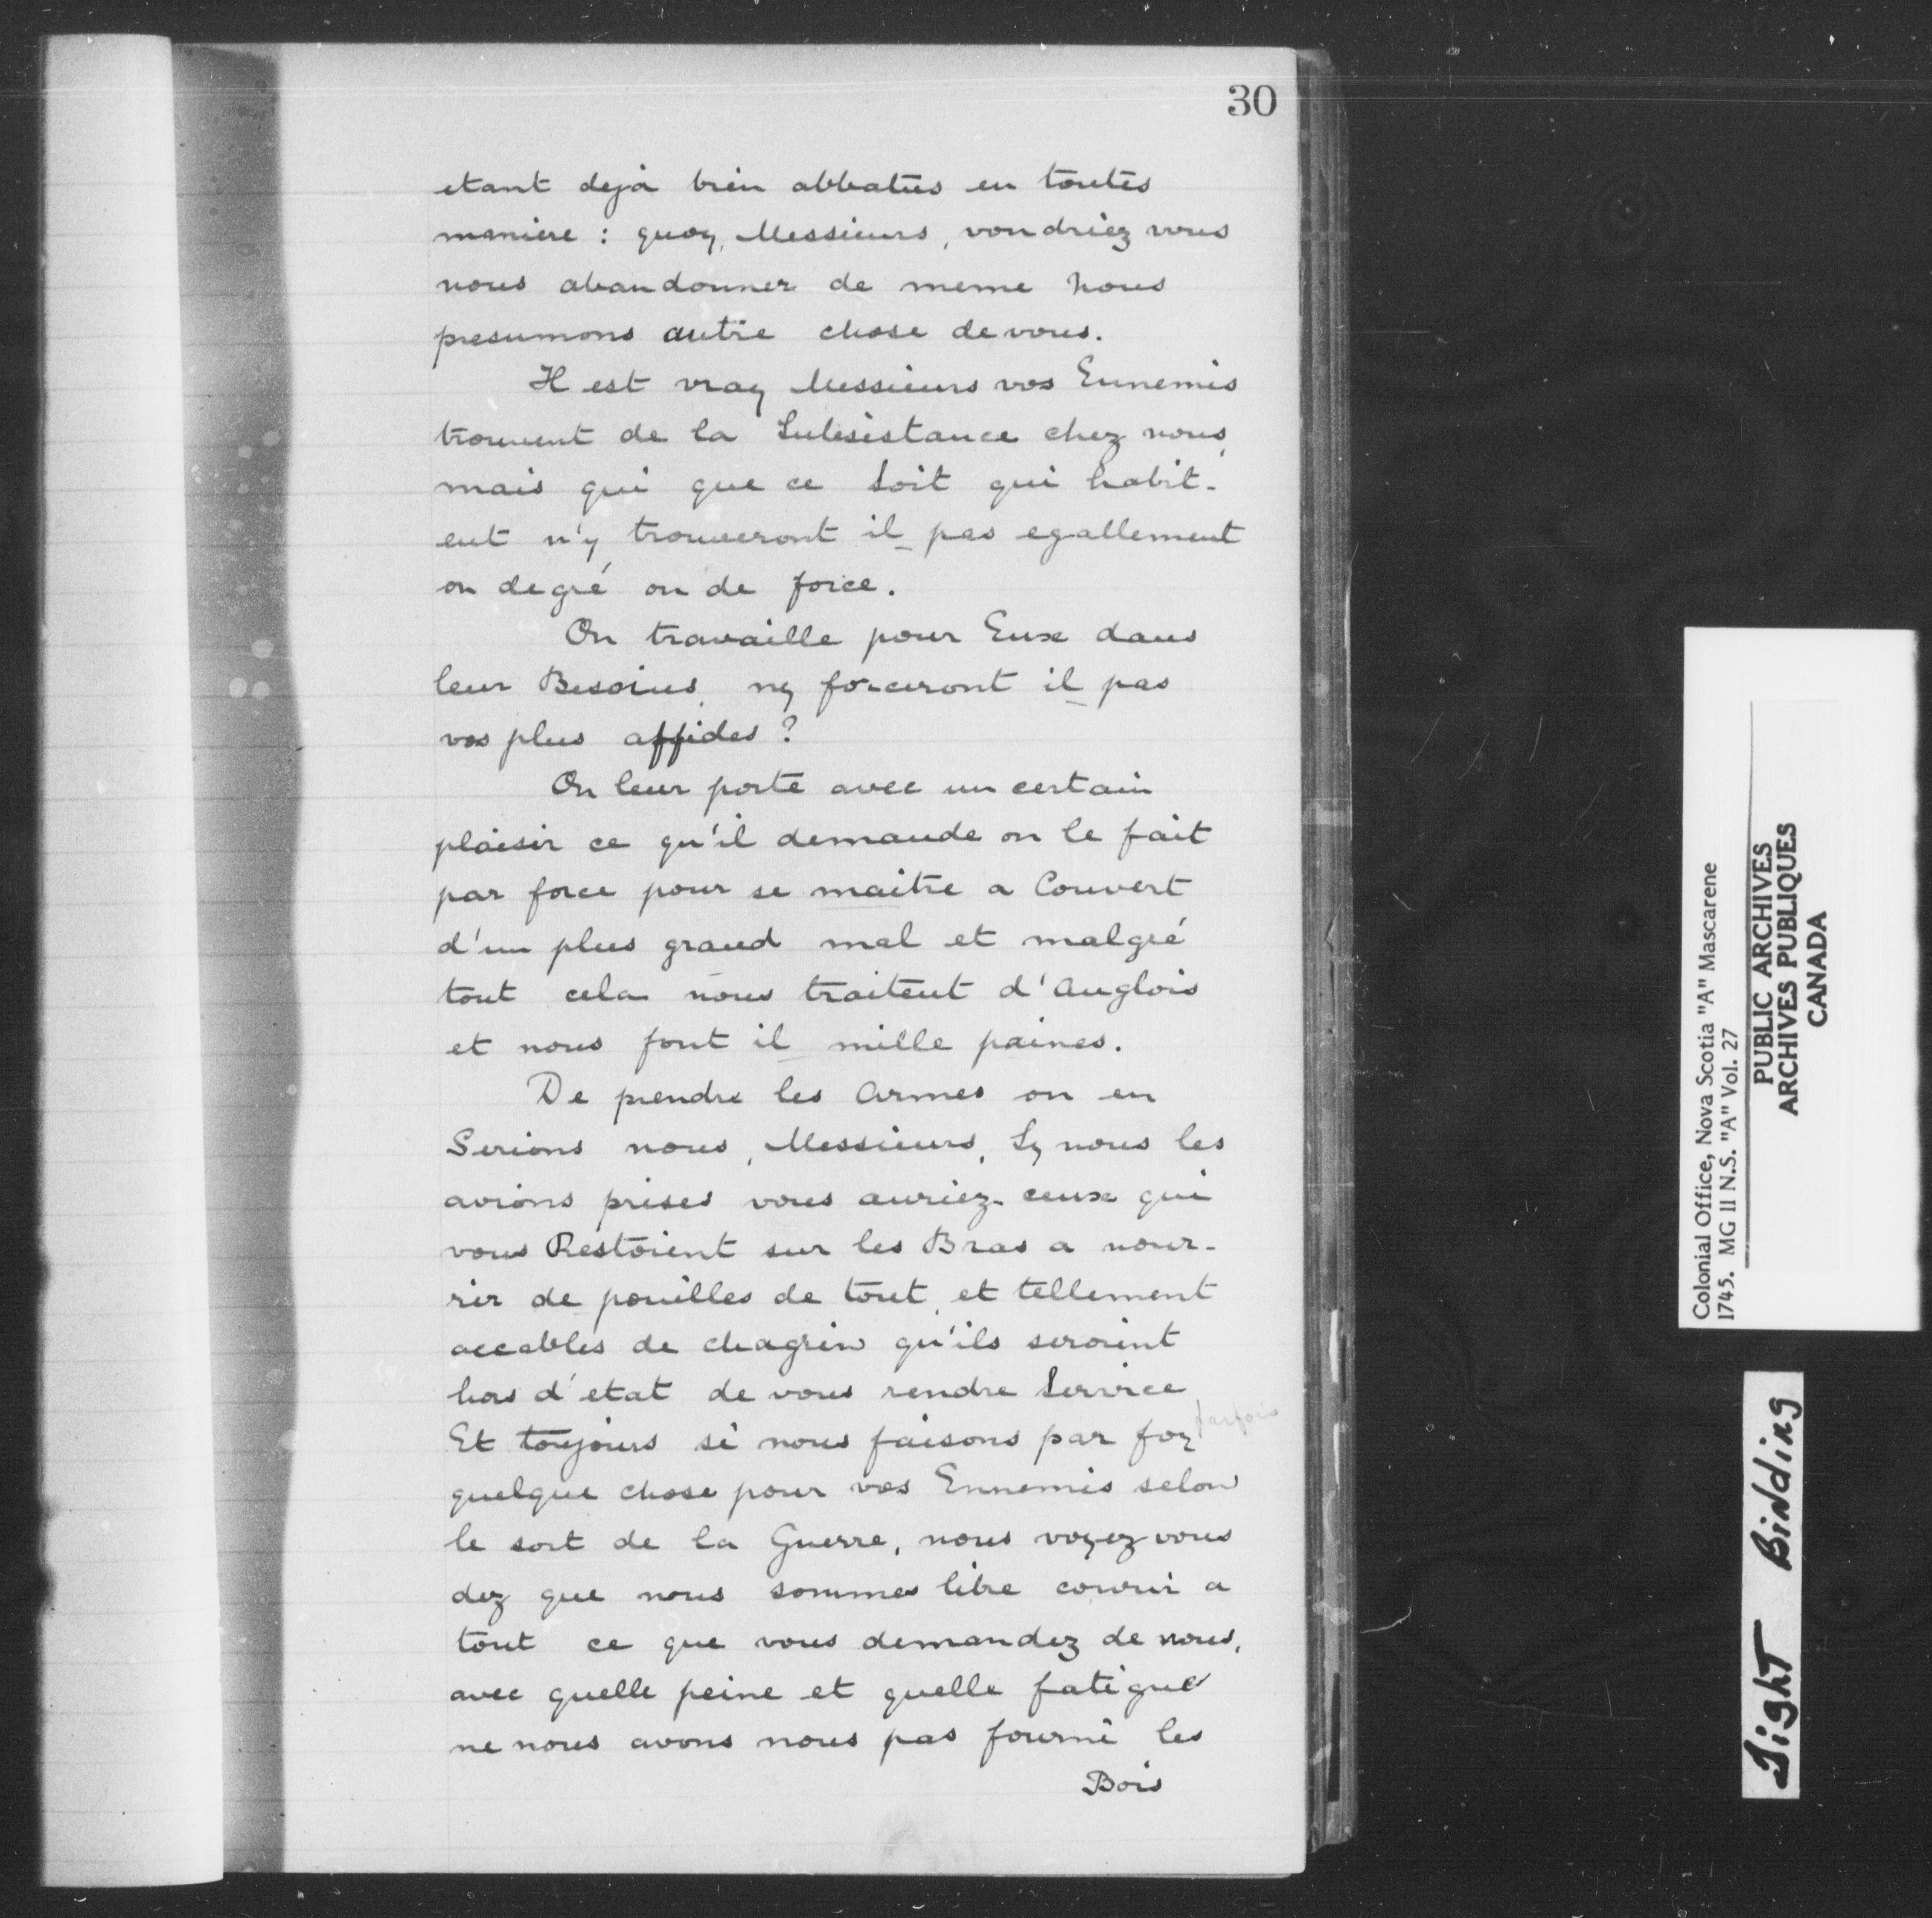 30
etant dejà bien abbatus en toutes
maniere : quoy, Messieurs, voudriez vous
nous abandonner de meme nous
presumons autre chose de vous.
Il est vray Messieurs vos Ennemis
trouvent de la Subsistance chez nous,
mais qui que ce soit qui habit-
ent n'y trouveront il pas egallement
ou degré ou de force.
On travaille pour Eux dans
leur Besoins, ny forceront il pas
vos plus affides ?
On leur porte avec un certain
plaisir ce qu'il demande on le fait
par force pour se maitre a Couvert
d'un plus grand mal et malgré
tout cela nous traitent d'Anglois
et nous font il mille paines.
De prendre les Armes ou en
Serions nous, Messieurs, Sy nous les
avions prises vous auriez ceux qui
vous Restoient sur les Bras a nour-
rir de pouilles de tout, et tellement
accables de chagrin qu'ils seroient
hors d'etat de vous rendre Service
Et toujours si nous faisons par foy parfois
quelque chose pour vos Ennemis selon
le sort de la Guerre, nous voyez vous
dez que nous sommes libre courir a
tout ce que vous demandez de nous,
avec quelle peine et quelle fatigue
ne nous avons nous pas fourni les
Bois
Colonial Office, Nova Scotia "A" Mascarene
1745. MG 11 N.S. "A" Vol. 27
PUBLIC ARCHIVES
ARCHIVES PUBLIQUES
CANADA
Tight Binding